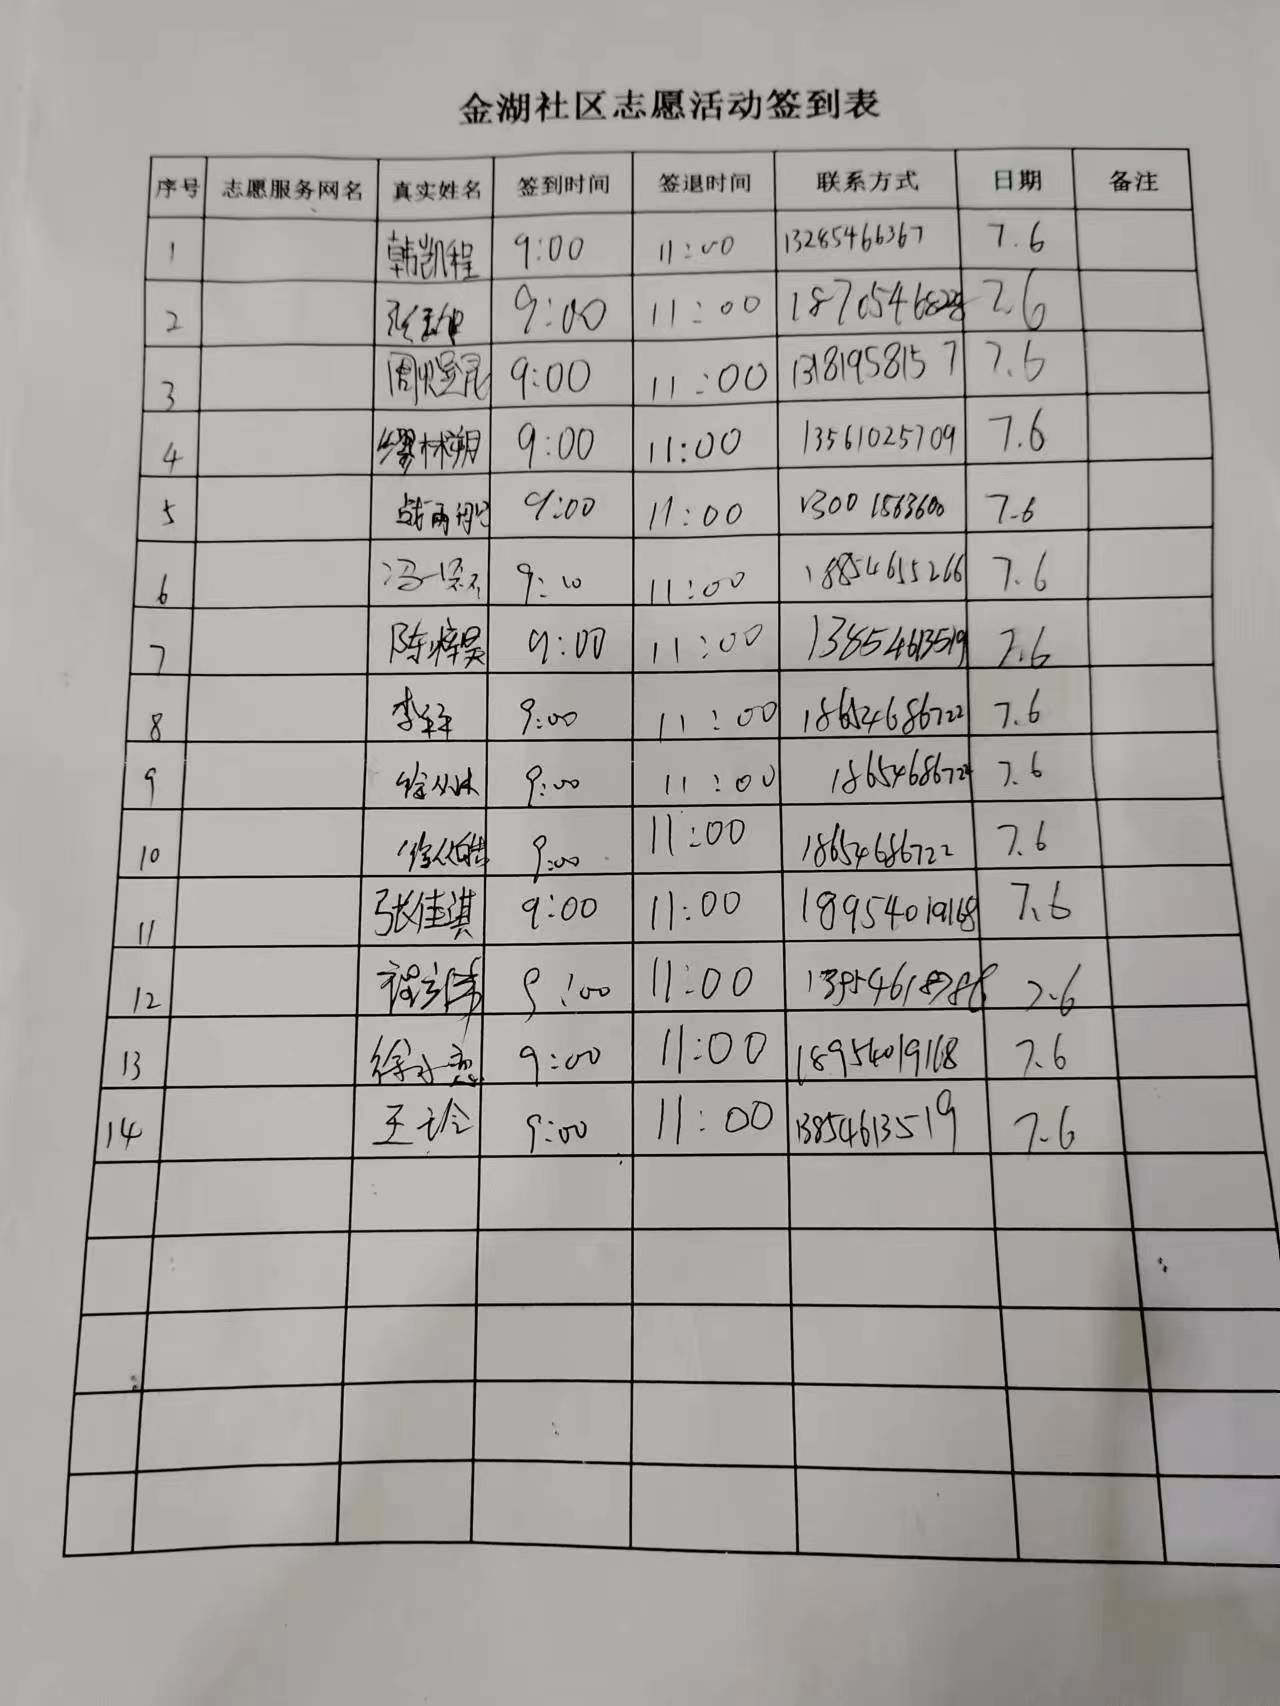 金湖社区志愿活动签到表
序号 志愿服务网名 真实姓名 签到时间 签退时间 联系方式 日期 备注
1 韩凯程 9:00 11:00 13285466367 7.6
2 9:00 11:00 7.6
3 9:00 11:00 13181958157 7.6
4 缪林朔 9:00 11:00 13561025709 7.6
5 9:00 11:00 13001563600 7.6
6 11:00 18854655266 7.6
7 陈梓昊 9:00 11:00 13854613519 7.6
8 9:00 11:00 18654686722 7.6
9 9:00 11:00 7.6
10 9:00 11:00 18654686722 7.6
11 张佳淇 9:00 11:00 18954019168 7.6
12 9:00 11:00 7.6
13 9:00 11:00 18954019168 7.6
14 王玲 9:00 11:00 13854613519 7.6